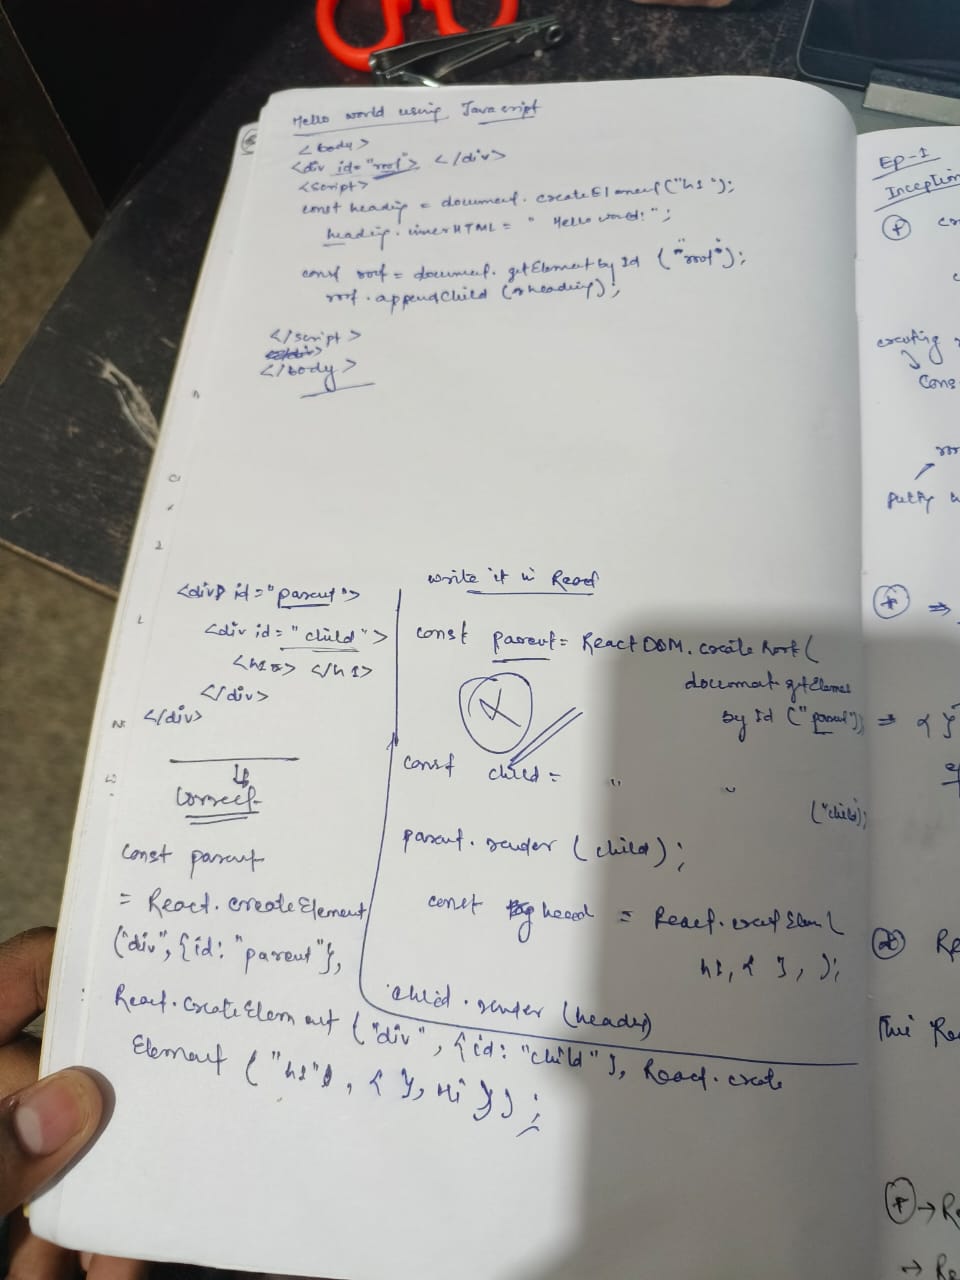 Hello world using Javascript
<body>
<div id="root"> </div>
<script>
const heading = document.createElement("h1");
heading.innerHTML = "Hello world!";
const root = document.getElementbyId ("root");
root.appendChild (heading);
</script>
</body>
<div id="parent">
<div id="child">
<h1> </h1>
</div>
</div>
Correct
const parent
= React.createElement
("div",{id:"parent"},
React.createElement ("div", {id: "child"}, React.create
Element ("h1", { }, Hi));
write it in React
const parent = ReactDOM.createRoot(
document.getElemen
by Id ("parent"));
const child = " "
("child);
parent.render (child);
const head = React.creatElem(
h1, { }, );
child.render (header)
Ep-1
Inception
creating
Cons
putty
=>
=> { }
Re
This Rea
-> Re
-> Re